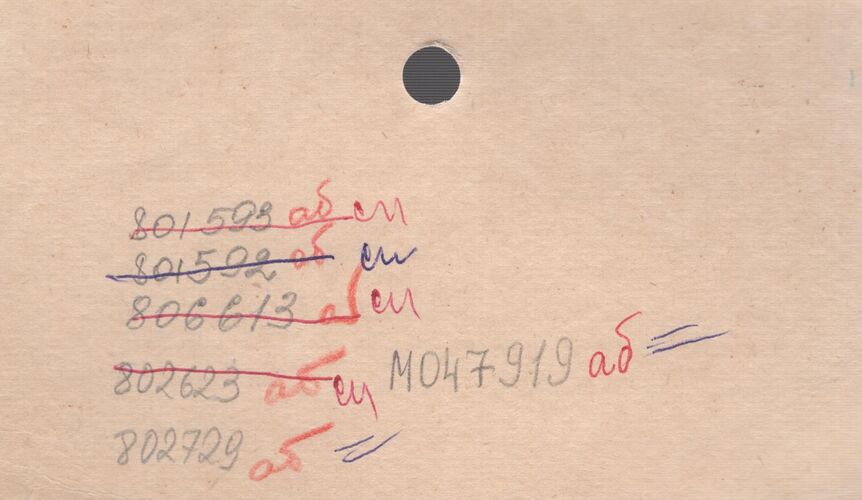 801593 аб си
801592 аб си
806613 аб си
802623 аб си
М047919 аб =
802729 аб =